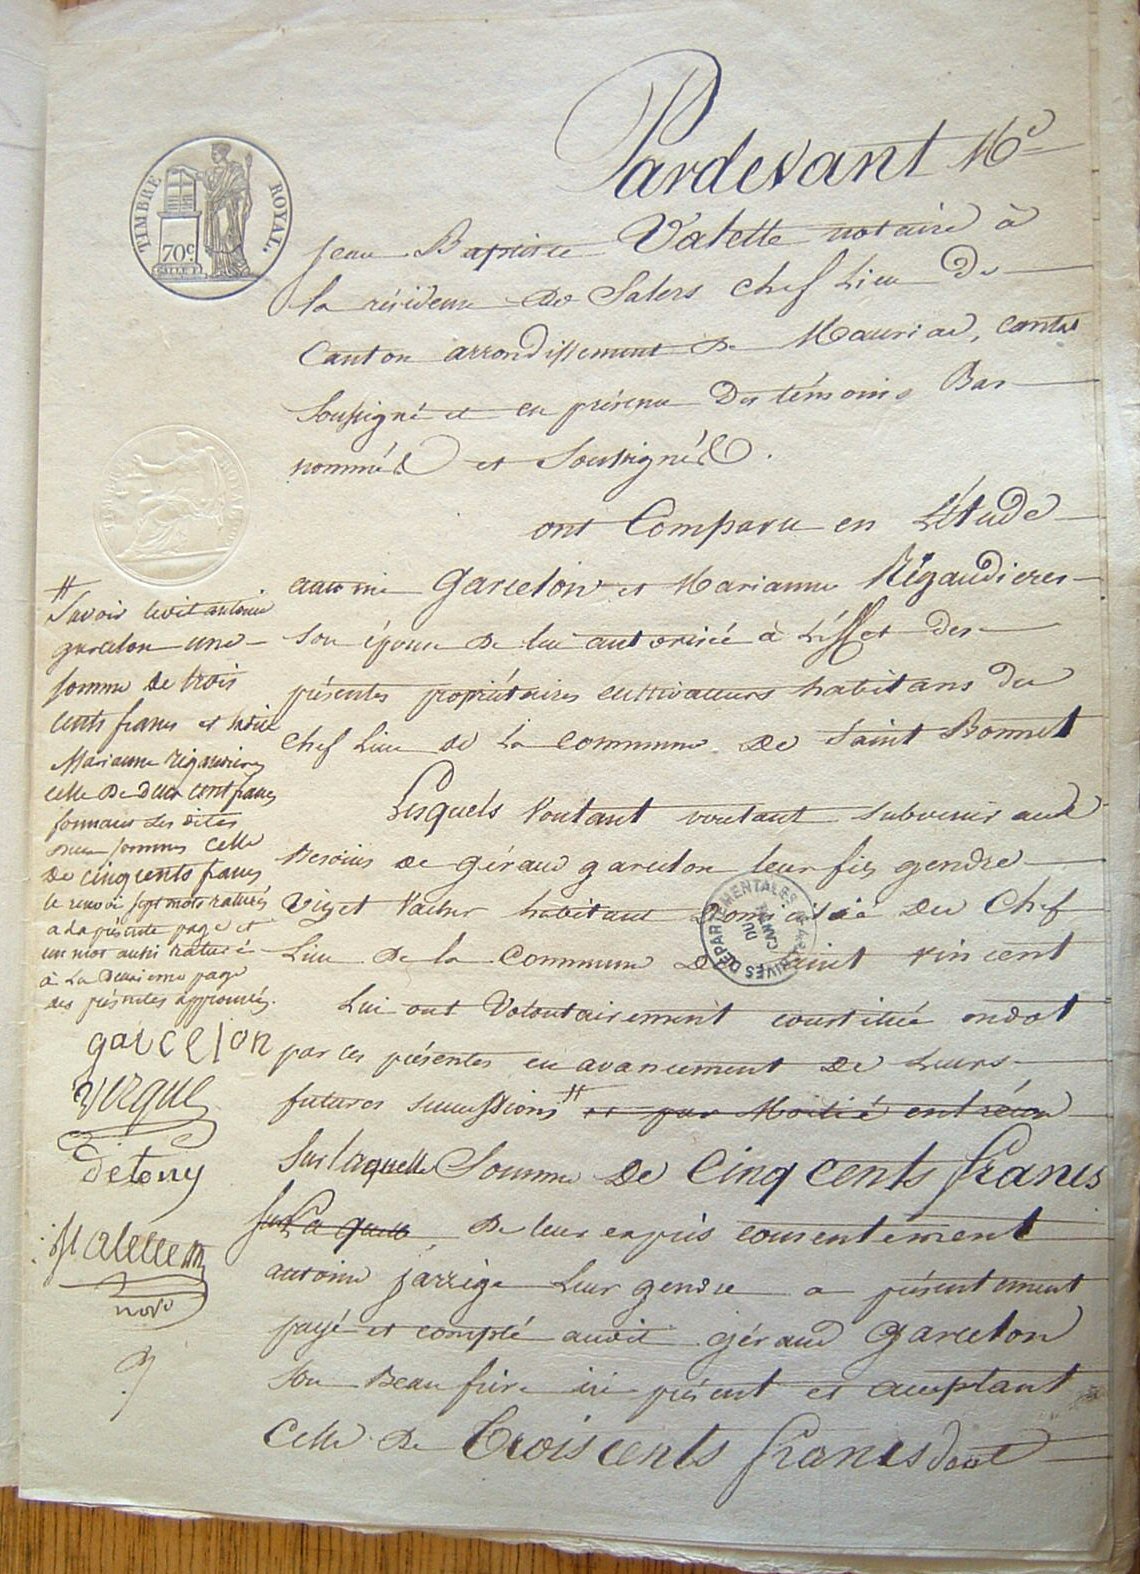 Pardevant Me
TIMBRE ROYAL.
70c
Jean Baptiste Valette notaire à
la résidence de Salers chef lieu de
Canton arrondissement de Mauriac, Cantal
Soussigné et en présence des témoins Bas
nommés et Soussignés.
ont Comparu en L'étude
antoine garcelon et Marianne Rigaudieres
son épouse de lui autorisée à L'effet des
présentes propriétaires cultivateurs habitans du
chef Lieu de la commune de Saint Bonnet
Lesquels Voulant voulant subvenir aux
Besoins de géraud garcelon leur fils gendre
Viget Vacher habitant Domicilié du Chef
Lieu de la Commune De Saint Vincent
Lui ont Volontairement constitué en dot
par ces présentes en avancement de Leurs
futures successions # et par Moitié entr'eux
Sur laquelle Somme De Cinq cents francs
Sur La quelle De leur exprès consentement
antoine jarrige Leur gendre a présentement
payé et compté audit géraud garcelon
son Beau frère ici présent et acceptant
Celle de Trois cents francs dont
#
Savoir ledit antoine
garcelon une
somme de trois
cents francs et ladite
Marianne rigaudieres
celle de deux cent francs
formant les dites
deux sommes celle
de cinq cents francs
le renvoi sept mots raturés
a la présente page et
un mot aussi raturé
à La Deuxieme page
des présentes approuvés.
garcelon
Vergue
detouy
Valette
nore
ARCHIVES DÉPARTEMENTALES
DU
CANTAL